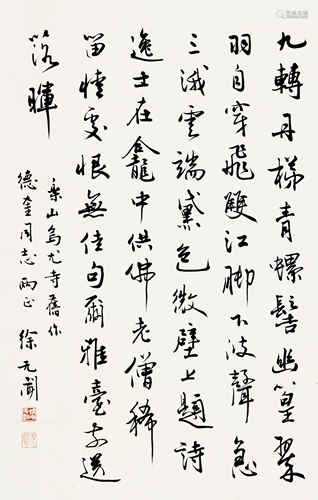 九轉丹梯青螺髻幽篁翠
羽自穿飛雙江腳下波聲急
三峨雲端黛色微壁上題詩
逸士在龕中供佛老僧稀
留情恨無佳句爾雅臺前送
落暉
樂山烏尤寺舊作
德奎同志兩正 徐无闻